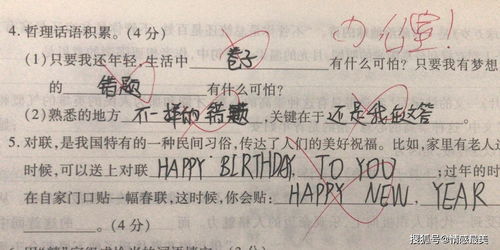 办公室!
4. 哲理话语积累。(4 分)
(1) 只要我还年轻,生活中 卷子 有什么可怕? 只要我有梦想
的 错题 有什么可怕?
(2) 熟悉的地方 不一样的错题,关键在于 还是我在答。
5. 对联,是我国特有的一种民间习俗,传达了人们的美好祝福。比如,家里有老人过
时候,可以送上对联 HAPPY BIRTHDAY, TO YOU ;过年的时
在自家门口贴一幅春联,这时候,你会贴: HAPPY NEW YEAR
。(4 分)
搜狐号@情感最美